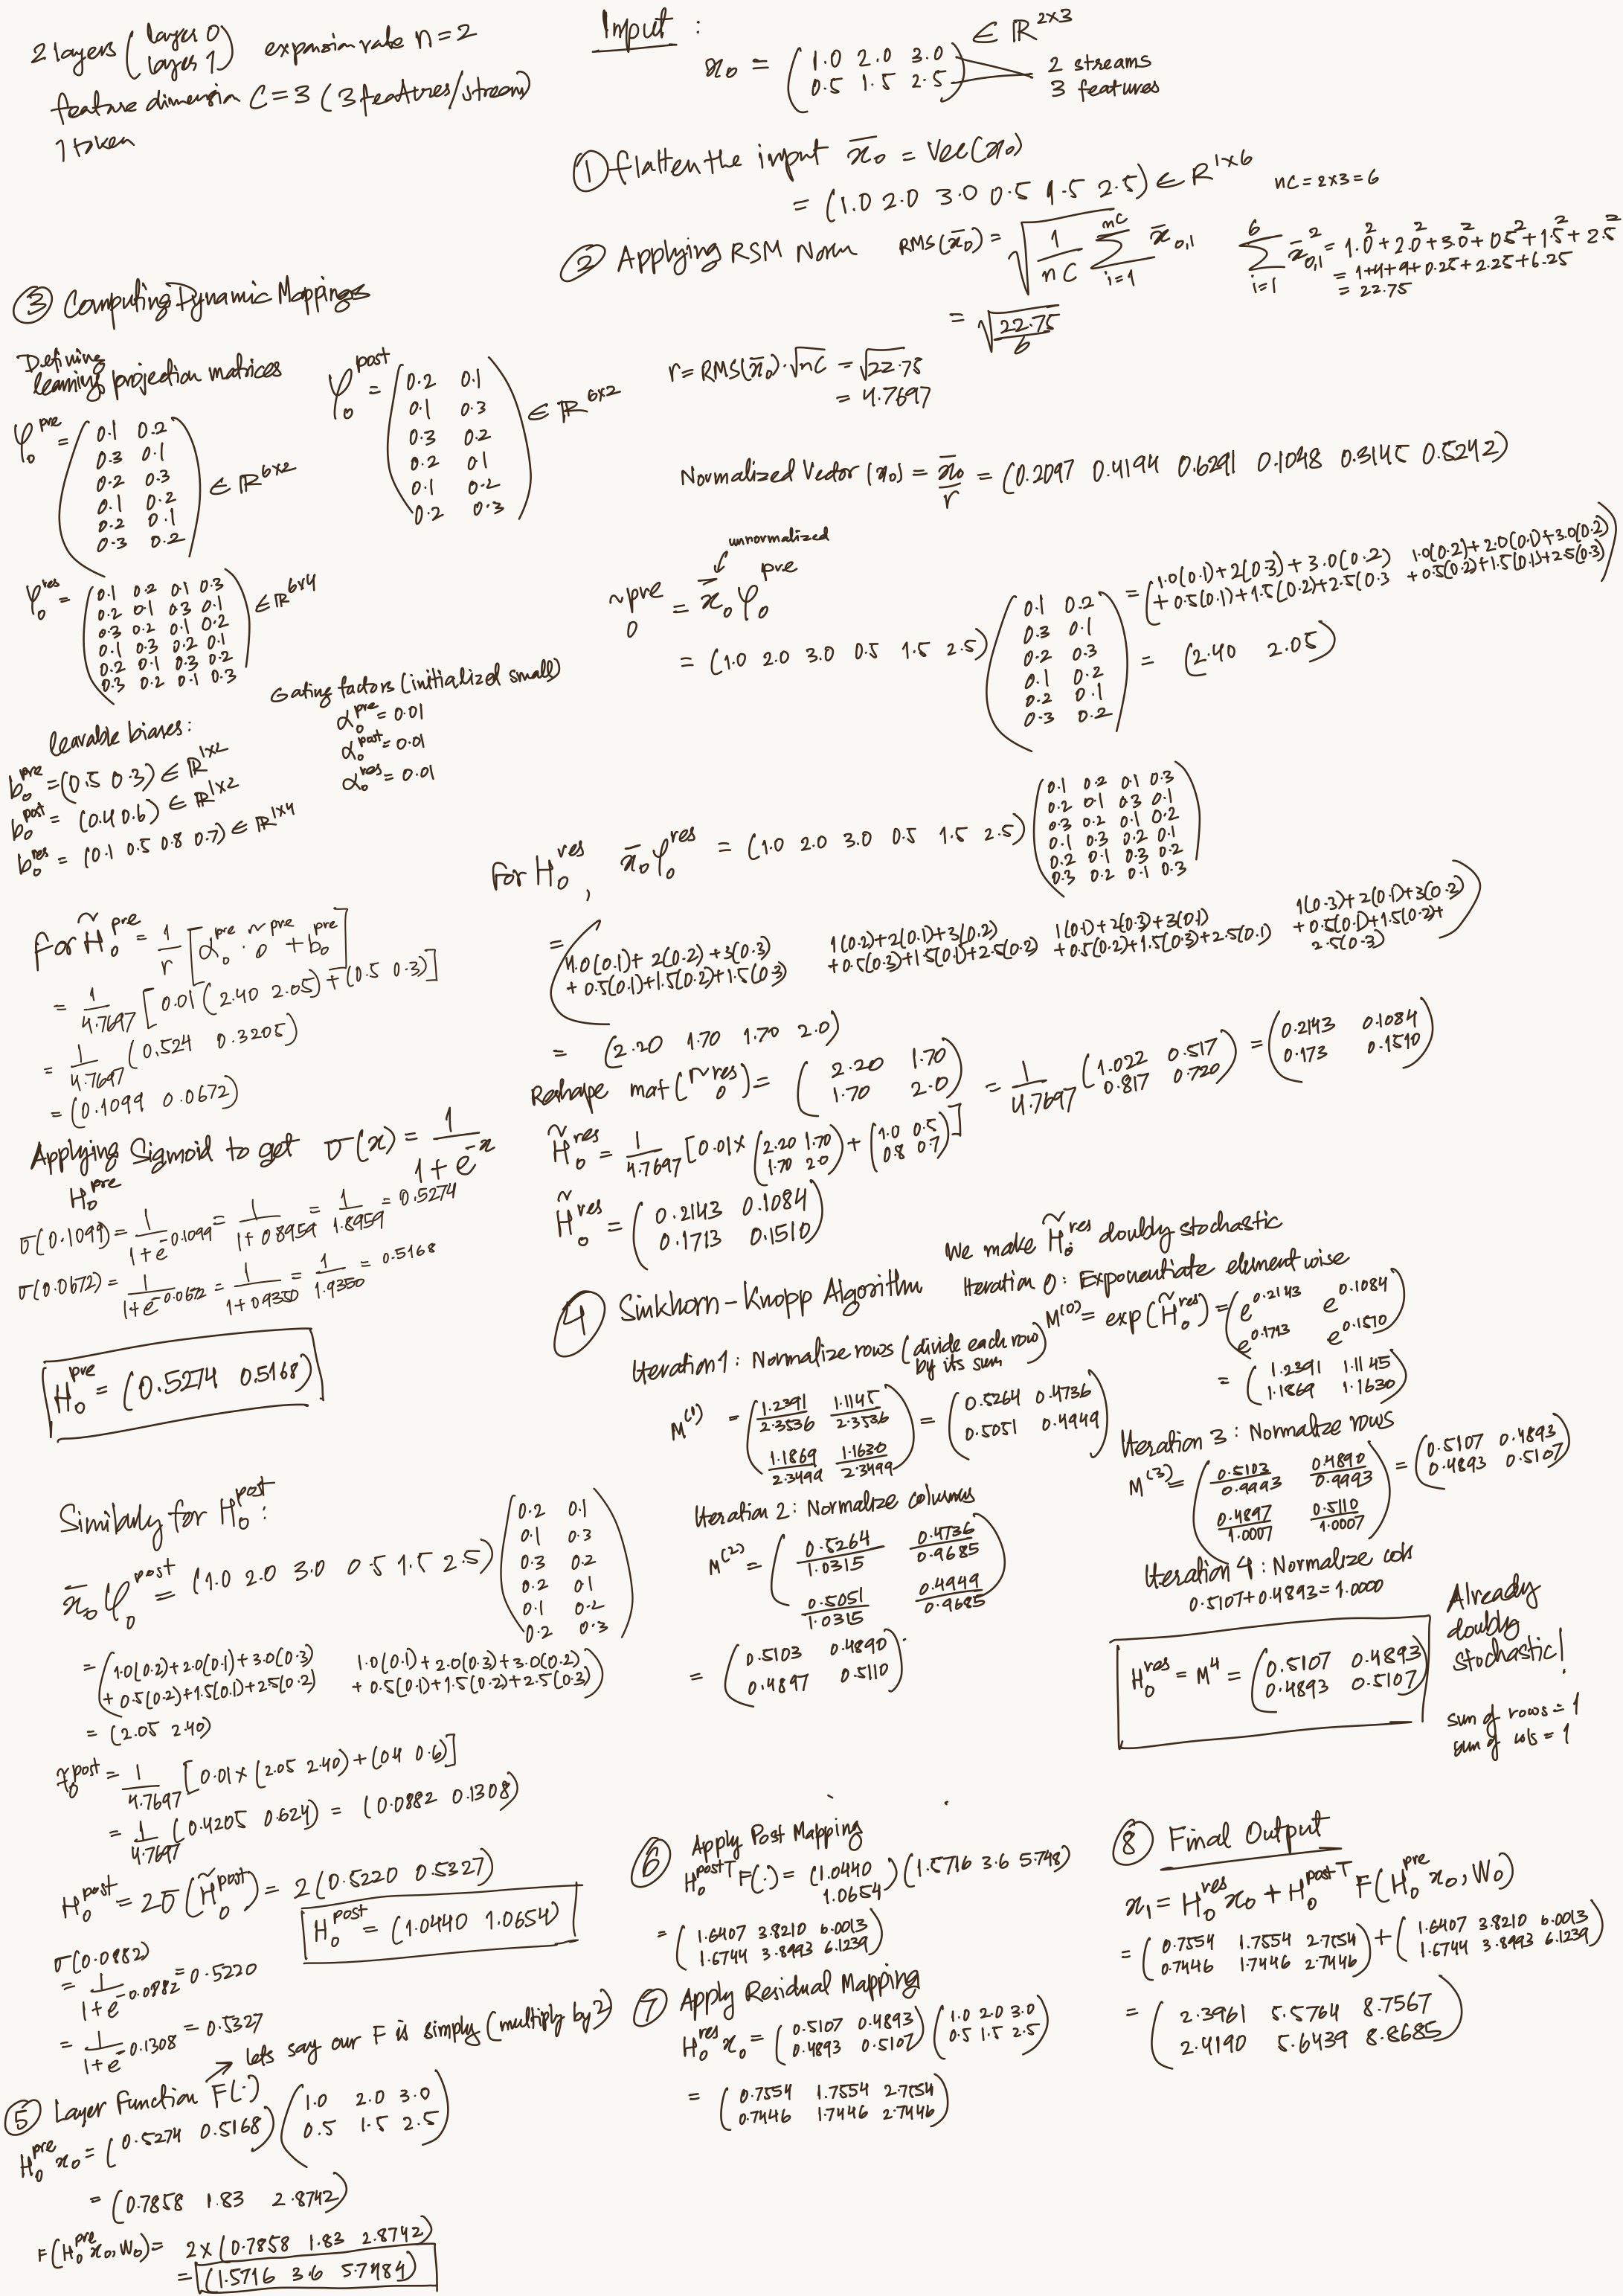 2 layers (layer 0
layer 1) expansion rate n = 2
feature dimension C = 3 (3 features/stream)
1 token
Input :
x₀ = (1.0 2.0 3.0
0.5 1.5 2.5) ∈ ℝ^{2×3}
2 streams
3 features
① flatten the input x̄₀ = Vec(x₀)
= (1.0 2.0 3.0 0.5 1.5 2.5) ∈ ℝ^{1×6} nC = 2×3 = 6
② Applying RSM Norm RMS(x̄₀) = √(1/nC Σ_{i=1}^{nC} x̄_{0,1}
Σ_{i=1}^{6} x̄²_{0,1} = 1.0² + 2.0² + 3.0² + 0.5² + 1.5² + 2.5²
= 1+4+9+0.25+2.25+6.25
= 22.75
= √(22.75/6)
r = RMS(x̄₀)·√nC = √22.75
= 4.7697
Normalized Vector (x₀) = x̄₀/r = (0.2097 0.4194 0.6291 0.1048 0.3145 0.5242)
③ Computing Dynamic Mappings
Defining
learning projection matrices
φ₀^{pre} = (0.1 0.2
0.3 0.1
0.2 0.3
0.1 0.2
0.2 0.1
0.3 0.2) ∈ ℝ^{6×2}
φ₀^{post} = (0.2 0.1
0.1 0.3
0.3 0.2
0.2 0.1
0.1 0.2
0.2 0.3) ∈ ℝ^{6×2}
φ₀^{res} = (0.1 0.2 0.1 0.3
0.2 0.1 0.3 0.1
0.3 0.2 0.1 0.2
0.1 0.3 0.2 0.1
0.2 0.1 0.3 0.2
0.3 0.2 0.1 0.3) ∈ ℝ^{6×4}
Gating factors (initialized small)
α₀^{pre} = 0.01
α₀^{post} = 0.01
α₀^{res} = 0.01
learable biases:
b₀^{pre} = (0.5 0.3) ∈ ℝ^{1×2}
b₀^{post} = (0.4 0.6) ∈ ℝ^{1×2}
b₀^{res} = (0.1 0.5 0.8 0.7) ∈ ℝ^{1×4}
unnormalized
~₀^{pre} = x̄₀φ₀^{pre}
= (1.0 2.0 3.0 0.5 1.5 2.5) (0.1 0.2
0.3 0.1
0.2 0.3
0.1 0.2
0.2 0.1
0.3 0.2)
= (1.0(0.1)+2(0.3)+3.0(0.2) 1.0(0.2)+2.0(0.1)+3.0(0.2)
+0.5(0.1)+1.5(0.2)+2.5(0.3 +0.5(0.2)+1.5(0.1)+2.5(0.3))
= (2.40 2.05)
for H̃₀^{pre} = 1/r [α₀^{pre} · ~₀^{pre} + b₀^{pre}]
= 1/4.7697 [0.01(2.40 2.05) + (0.5 0.3)]
= 1/4.7697 (0.524 0.3205)
= (0.1099 0.0672)
Applying Sigmoid to get σ(x) = 1/(1+e^{-x})
H₀^{pre}
σ(0.1099) = 1/(1+e^{-0.1099}) = 1/(1+0.8959) = 1/1.8959 = 0.5274
σ(0.0672) = 1/(1+e^{-0.0672}) = 1/(1+0.9350) = 1/1.9350 = 0.5168
H₀^{pre} = (0.5274 0.5168)
for H₀^{res}, x̄₀φ₀^{res} = (1.0 2.0 3.0 0.5 1.5 2.5) (0.1 0.2 0.1 0.3
0.2 0.1 0.3 0.1
0.3 0.2 0.1 0.2
0.1 0.3 0.2 0.1
0.2 0.1 0.3 0.2
0.3 0.2 0.1 0.3)
= (1.0(0.1)+2(0.2)+3(0.3) 1(0.2)+2(0.1)+3(0.2) 1(0.1)+2(0.3)+3(0.1) 1(0.3)+2(0.1)+3(0.2)
+0.5(0.1)+1.5(0.2)+1.5(0.3) +0.5(0.3)+1.5(0.1)+2.5(0.2) +0.5(0.2)+1.5(0.3)+2.5(0.1) +0.5(0.1)+1.5(0.2)+
2.5(0.3))
= (2.20 1.70 1.70 2.0)
Reshape mat(~₀^{res}) = (2.20 1.70
1.70 2.0)
H̃₀^{res} = 1/4.7697 [0.01 × (2.20 1.70
1.70 2.0) + (1.0 0.5
0.8 0.7)]
= 1/4.7697 (1.022 0.517
0.817 0.720) = (0.2143 0.1084
0.173 0.1510)
H̃₀^{res} = (0.2143 0.1084
0.1713 0.1510)
④ Sinkhorn-Knopp Algorithm
We make H̃₀^{res} doubly stochastic
Iteration 0: Exponentiate element wise
M^{(0)} = exp(H̃₀^{res}) = (e^{0.2143} e^{0.1084}
e^{0.1713} e^{0.1510})
= (1.2391 1.1145
1.1869 1.1630)
Iteration 1: Normalize rows (divide each row
by its sum
M^{(1)} = (1.2391/2.3536 1.1145/2.3536
1.1869/2.3499 1.1630/2.3499) = (0.5264 0.4736
0.5051 0.4949)
Iteration 2: Normalize columns
M^{(2)} = (0.5264/1.0315 0.4736/0.9685
0.5051/1.0315 0.4949/0.9685)
= (0.5103 0.4890
0.4897 0.5110)
Iteration 3: Normalize rows
M^{(3)} = (0.5103/0.9993 0.4890/0.9993
0.4897/1.0007 0.5110/1.0007) = (0.5107 0.4893
0.4893 0.5107)
Iteration 4: Normalize cols
0.5107+0.4893=1.0000
H₀^{res} = M⁴ = (0.5107 0.4893
0.4893 0.5107)
Already
doubly
stochastic!
sum of rows = 1
sum of cols = 1
Similarly for H₀^{post}:
x̄₀φ₀^{post} = (1.0 2.0 3.0 0.5 1.5 2.5) (0.2 0.1
0.1 0.3
0.3 0.2
0.2 0.1
0.1 0.2
0.2 0.3)
= (1.0(0.2)+2.0(0.1)+3.0(0.3) 1.0(0.1)+2.0(0.3)+3.0(0.2)
+0.5(0.2)+1.5(0.1)+2.5(0.2) +0.5(0.1)+1.5(0.2)+2.5(0.3))
= (2.05 2.40)
H̃₀^{post} = 1/4.7697 [0.01 × (2.05 2.40) + (0.4 0.6)]
= 1/4.7697 (0.4205 0.624) = (0.0882 0.1308)
H₀^{post} = 2σ(H̃₀^{post}) = 2(0.5220 0.5327)
H₀^{post} = (1.0440 1.0654)
σ(0.0882)
= 1/(1+e^{-0.0882}) = 0.5220
= 1/(1+e^{-0.1308}) = 0.5327
→ lets say our F is simply (multiply by 2)
⑤ Layer Function F(·)
H₀^{pre} x₀ = (0.5274 0.5168) (1.0 2.0 3.0
0.5 1.5 2.5)
= (0.7858 1.83 2.8742)
F(H₀^{pre} x₀, W₀) = 2 × (0.7858 1.83 2.8742)
= (1.5716 3.6 5.7484)
⑥ Apply Post Mapping
H₀^{post T} F(·) = (1.0440
1.0654) (1.5716 3.6 5.748)
= (1.6407 3.8210 6.0013
1.6744 3.8993 6.1239)
⑦ Apply Residual Mapping
H₀^{res} x₀ = (0.5107 0.4893
0.4893 0.5107) (1.0 2.0 3.0
0.5 1.5 2.5)
= (0.7554 1.7554 2.7554
0.7446 1.7446 2.7446)
⑧ Final Output
x₁ = H₀^{res} x₀ + H₀^{post T} F(H₀^{pre} x₀, W₀)
= (0.7554 1.7554 2.7554
0.7446 1.7446 2.7446) + (1.6407 3.8210 6.0013
1.6744 3.8993 6.1239)
= (2.3961 5.5764 8.7567
2.4190 5.6439 8.8685)